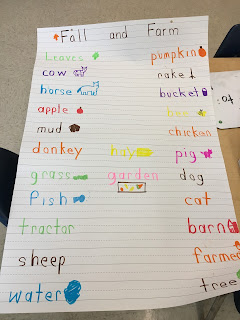 Fall and Farm
leaves pumpkin
cow rake
horse bucket
apple
mud chicken
donkey hay pig
grass garden dog
fish cat
tractor barn
sheep farmer
water tree
to: